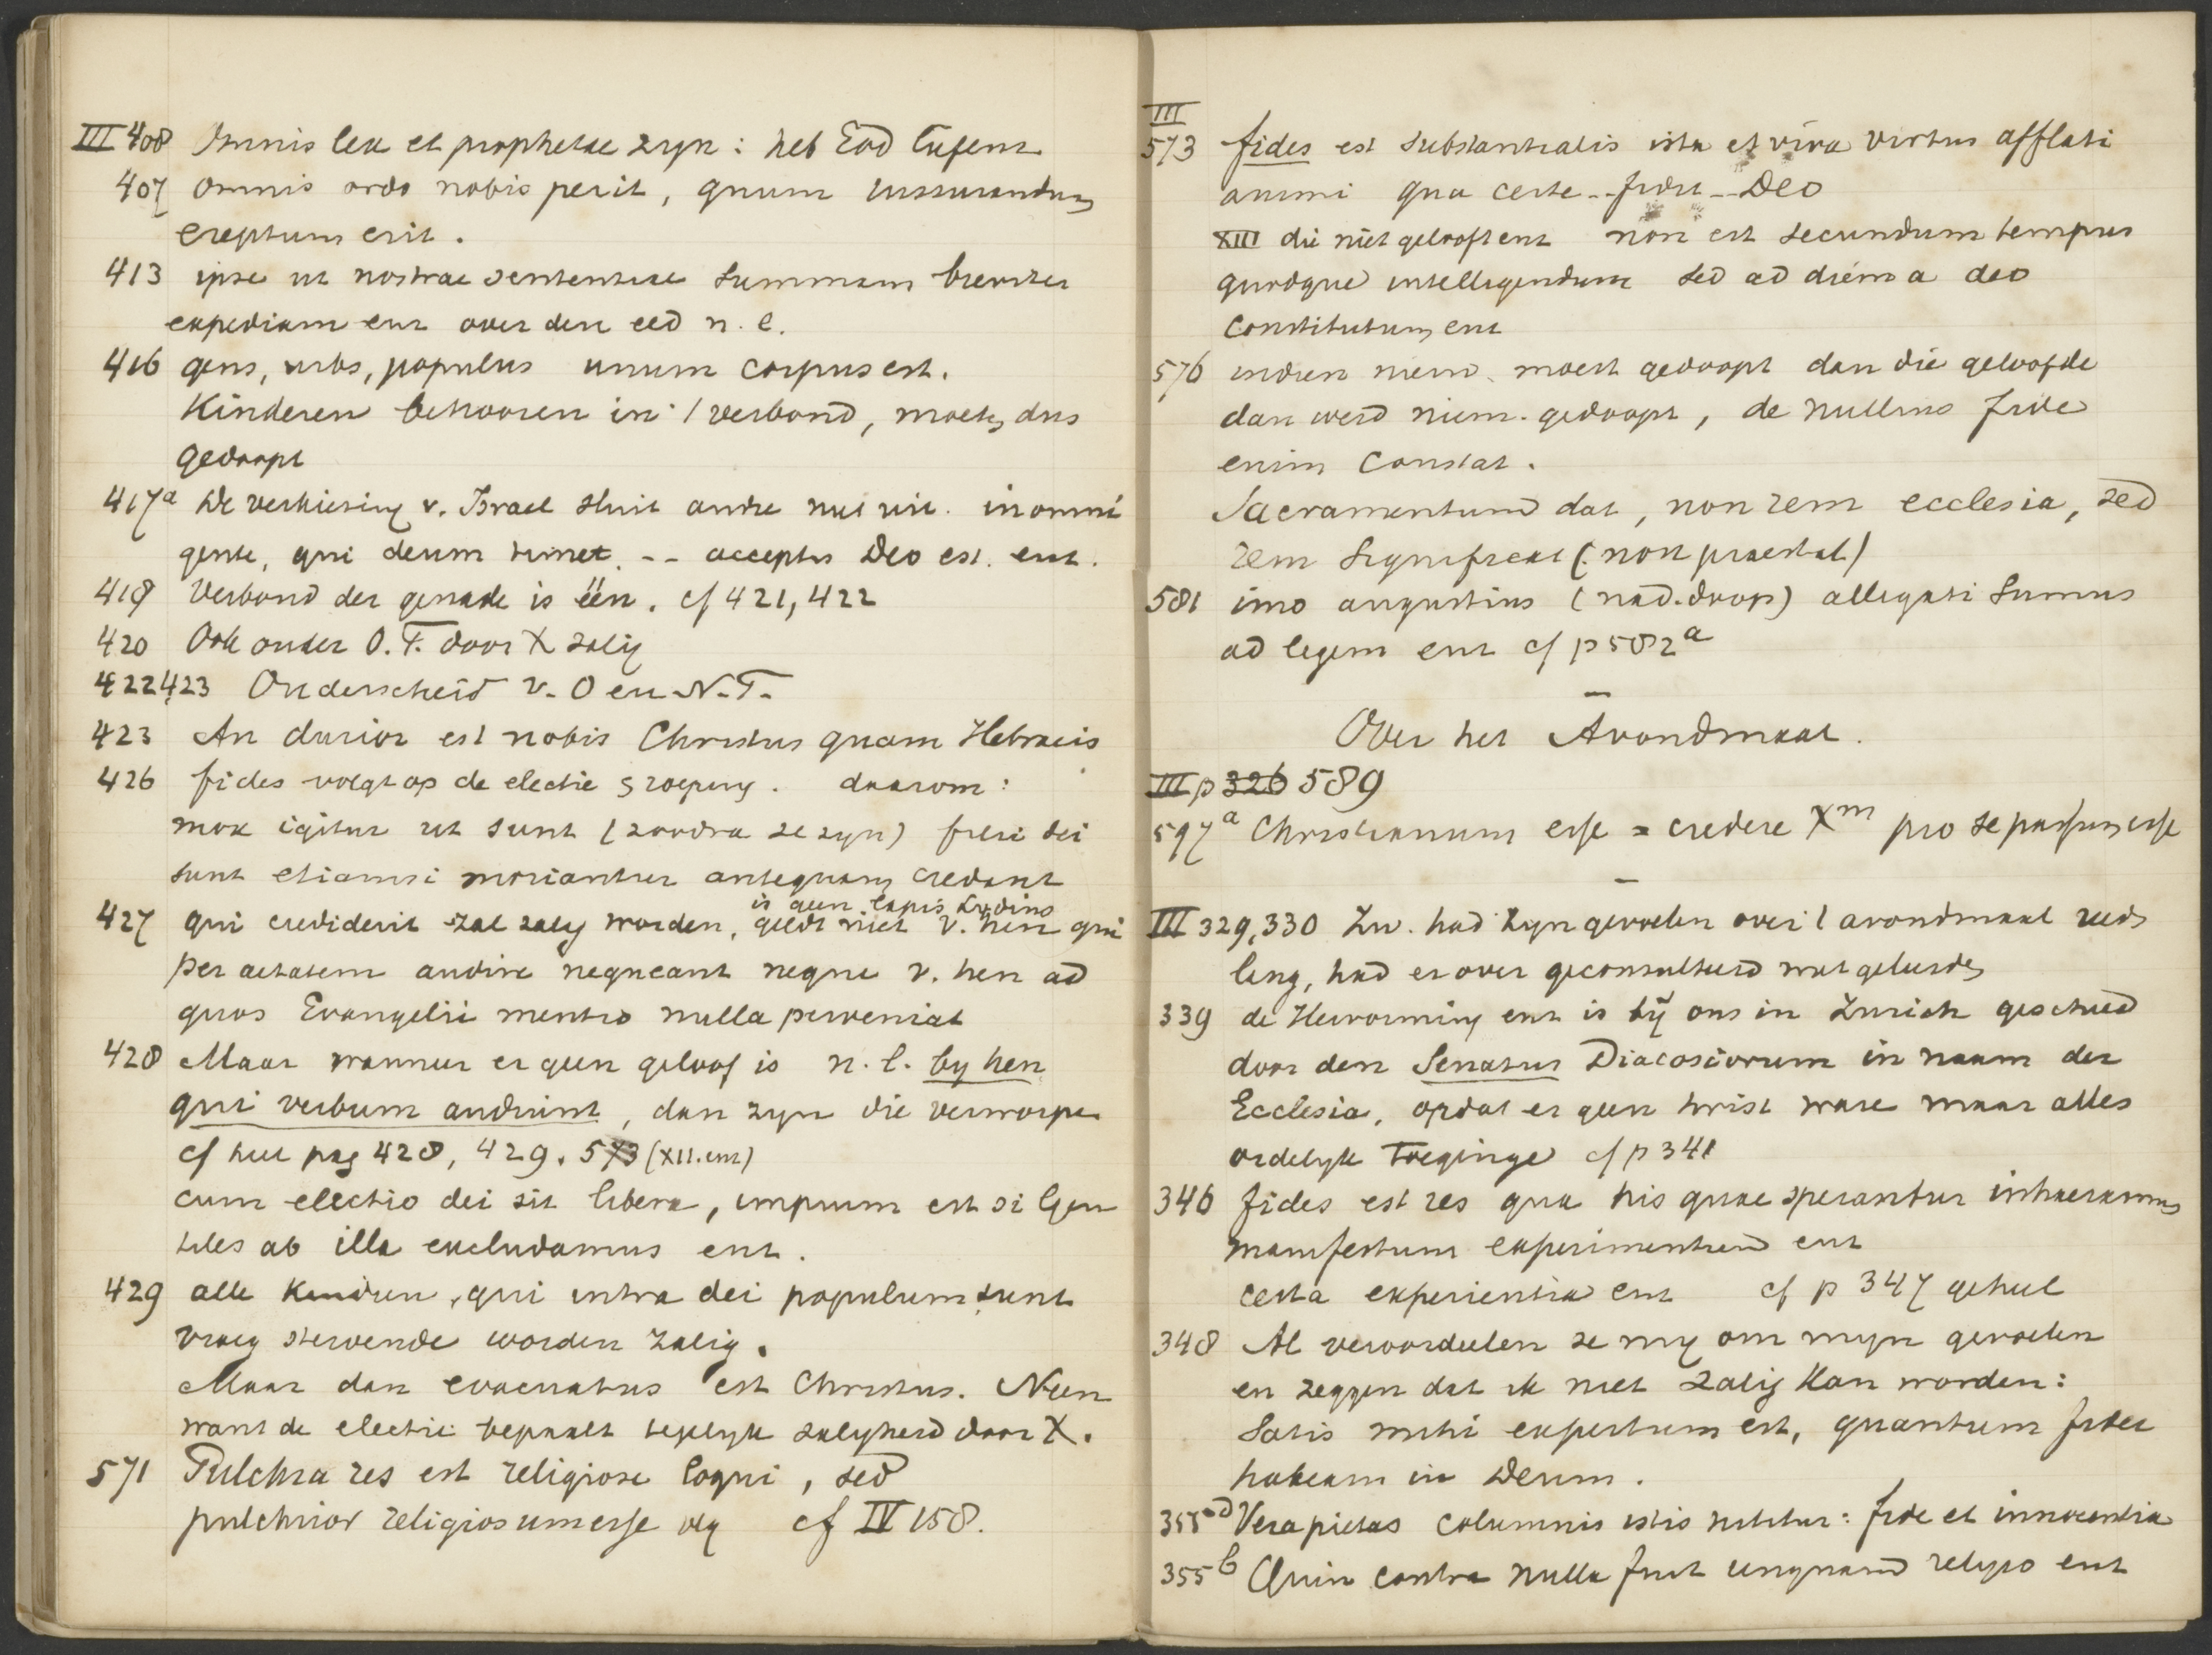 III 408 Omnis lex et prophetae zyn: heb God
407 omnis ordo nobis perit, quum iusiurandum
ereptum erit.
413 ipse ut nostrae sententiae summam breviter
expediam enz over den eed n. l.
416 gens, urbs, populus unum corpus est.
Kinderen behooren in 't verbond, moeten dus
gedoopt
417a De verkiesing v. Israel sluit andre niet uit. in omni
gente, qui deum timet -- acceptus Deo est. enz.
419 Verbond der genade is één. cf 421, 422
420 Ook onder O.T. door X zalig
422,423 Onderscheid v. O en N.T.
423 An durior est nobis Christus quam Hebraeis
426 fides volgt op de electie & roeping. daarom:
mox igitur ut sunt (zoodra ze zyn) filii dei
sunt etiamsi moriantur antequam credant
is geen lapis Lydius
427 qui crediderit zal zalig worden, geldt niet v. hen qui
per aetatem audire nequeant neque v. hen ad
quos Evangelii mentio nulla perveniat
428 Maar wanneer er geen geloof is n. l. by hen
qui verbum audiunt, dan zyn die verworpen
cf heel pag 428, 429. 573 (XII. enz)
cum electio dei sit libera, impium est si Gen
tiles ab illa excludamus enz.
429 alle Kinderen, qui intra dei populum sunt
vroeg stervende worden zalig.
Maar dan evacuatus est Christus. Neen
want de electie bepaalt tegelyk zaligheid door X.
571 Pulchra res est religiose loqui, sed
pulchrior religiosum esse vlg cf IV 158.
III
573 fides est substantialis ista et viva virtus afflati
animi qua certe -- fidit -- Deo
XIII die niet gelooft enz non est secundum tempus
quodque intelligendum sed ad diem a deo
constitutum enz
576 indien niem. moest gedoopt dan die geloofde
dan werd niem. gedoopt, de nullius fide
enim constat.
Sacramentum dat, non rem ecclesia, sed
rem significat (non praestat)
581 imo angustius (nad. doop) alligati sumus
ad legem enz cf p 582a
Over het Avondmaal.
III p 326 589
597a Christianum esse = credere Xm pro se passum esse
III 329,330 Zw. had zyn gevoelen over 't avondmaal reeds
lang, had er over geconsulteerd met geleerden
339 de Hervorming enz is bij ons in Zurich geschied
door den Senatus Diacosiorum in naam der
Ecclesia, opdat er geen twist ware maar alles
ordelyk toeginge cf p 341
346 fides est res qua his quae sperantur inhaeramus
manifestum experimentum enz
certa experientia enz cf p 347 geheel
348 Al veroordeelen ze my om myn gevoelen
en zeggen dat ik niet zalig kan worden:
Satis mihi expertum est, quantum fidei
habeam in Deum.
355 Vera pietas columnis istis nititur: fide et innocentia
355b Quin contra nulla fuit unquam religio enz